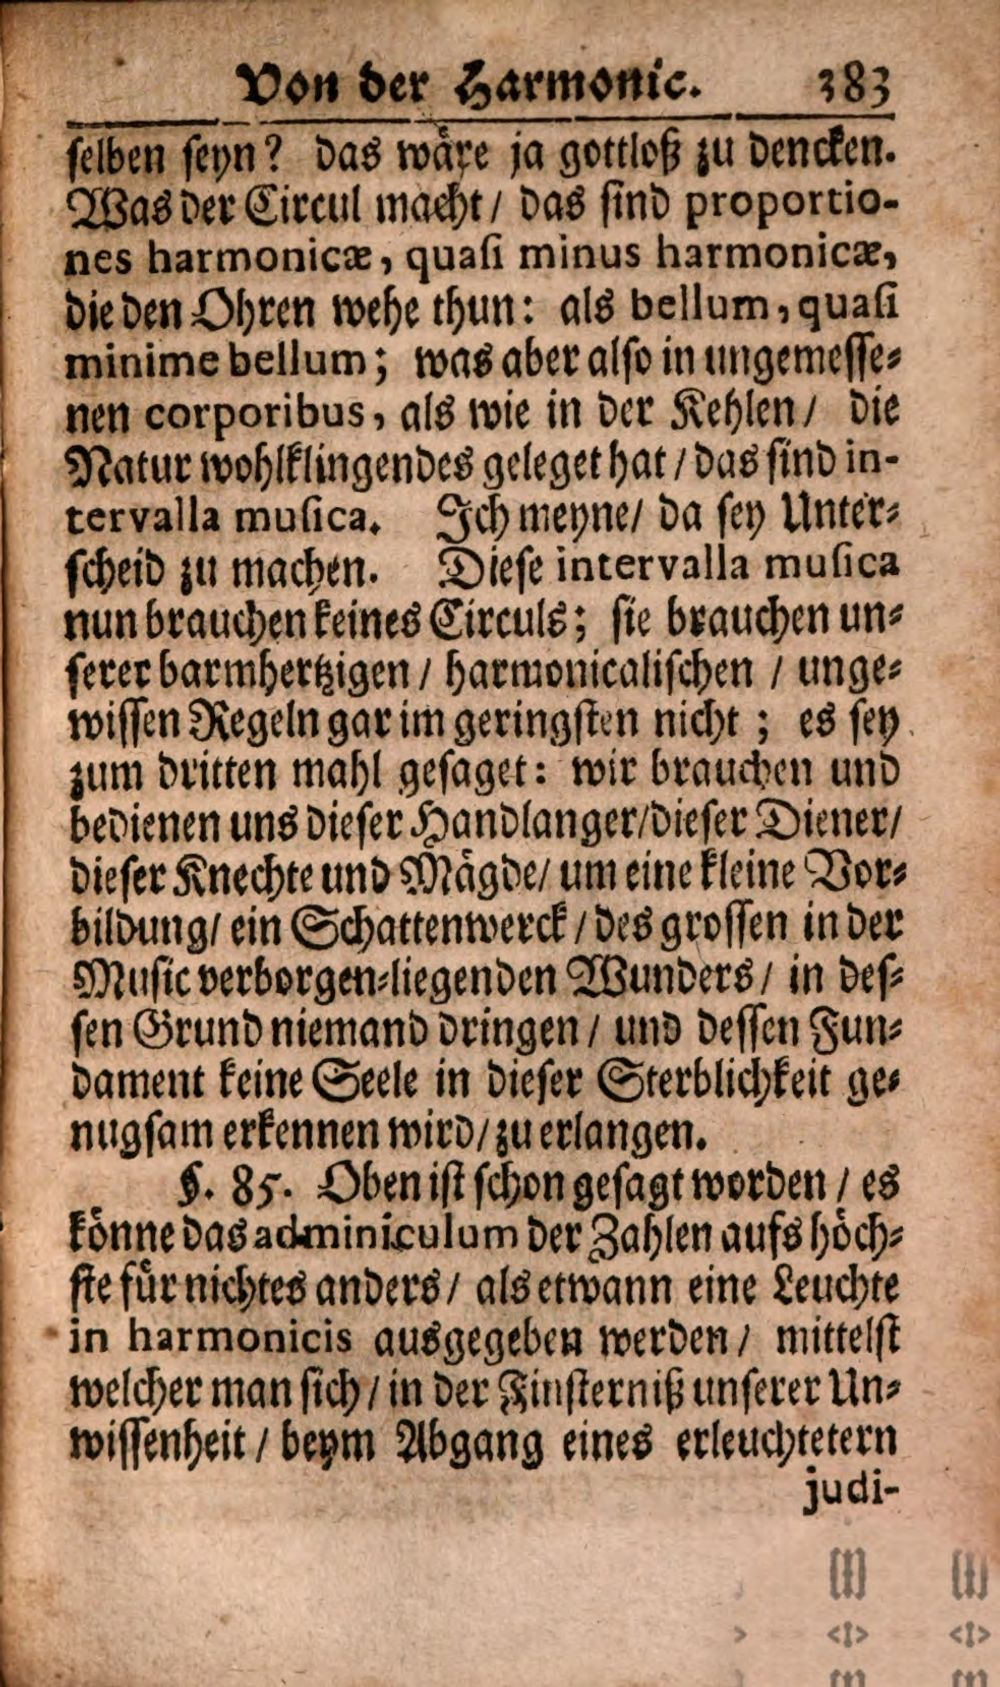 Von der Harmonic. 383
selben seyn? das wäre ja gottloß zu dencken.
Was der Circul macht / das sind proportio-
nes harmonicæ, quasi minus harmonicæ,
die den Ohren wehe thun: als bellum, quasi
minime bellum; was aber also in ungemesse-
nen corporibus, als wie in der Kehlen / die
Natur wohlklingendes geleget hat / das sind in-
tervalla musica. Ich meyne / da sey Unter-
scheid zu machen. Diese intervalla musica
nun brauchen keines Circuls; sie brauchen un-
serer barmhertzigen / harmonicalischen / unge-
wissen Regeln gar im geringsten nicht; es sey
zum dritten mahl gesaget: wir brauchen und
bedienen uns dieser Handlanger / dieser Diener /
dieser Knechte und Mägde / um eine kleine Vor-
bildung / ein Schattenwerck / des grossen in der
Music verborgen-liegenden Wunders / in des-
sen Grund niemand dringen / und dessen Fun-
dament keine Seele in dieser Sterblichkeit ge-
nugsam erkennen wird / zu erlangen.
§. 85. Oben ist schon gesagt worden / es
könne das adminiculum der Zahlen aufs höch-
ste für nichtes anders / als etwann eine Leuchte
in harmonicis ausgegeben werden / mittelst
welcher man sich / in der Finsterniß unserer Un-
wissenheit / beym Abgang eines erleuchtetern
judi-